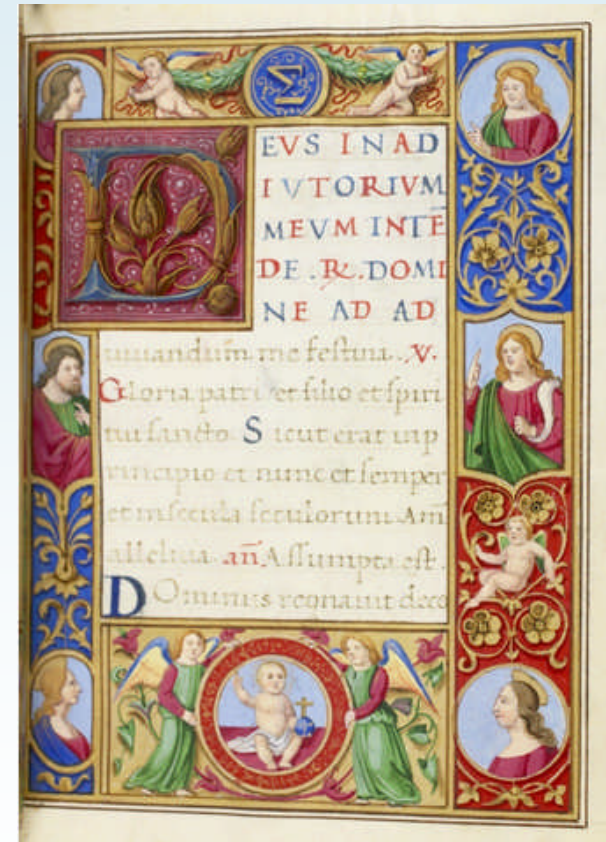 DEUS IN AD
IVTORIVM
MEVM INTĒ
DE . R. DOMI
NE AD AD
iuuandum me festina . V.
Gloria patri et filio et spiri
tui sancto Sicut erat in p
rincipio et nunc et semper
et in secula seculorum Am̄
alleluia. an̄. Assumpta est.
DOminus regnauit deco